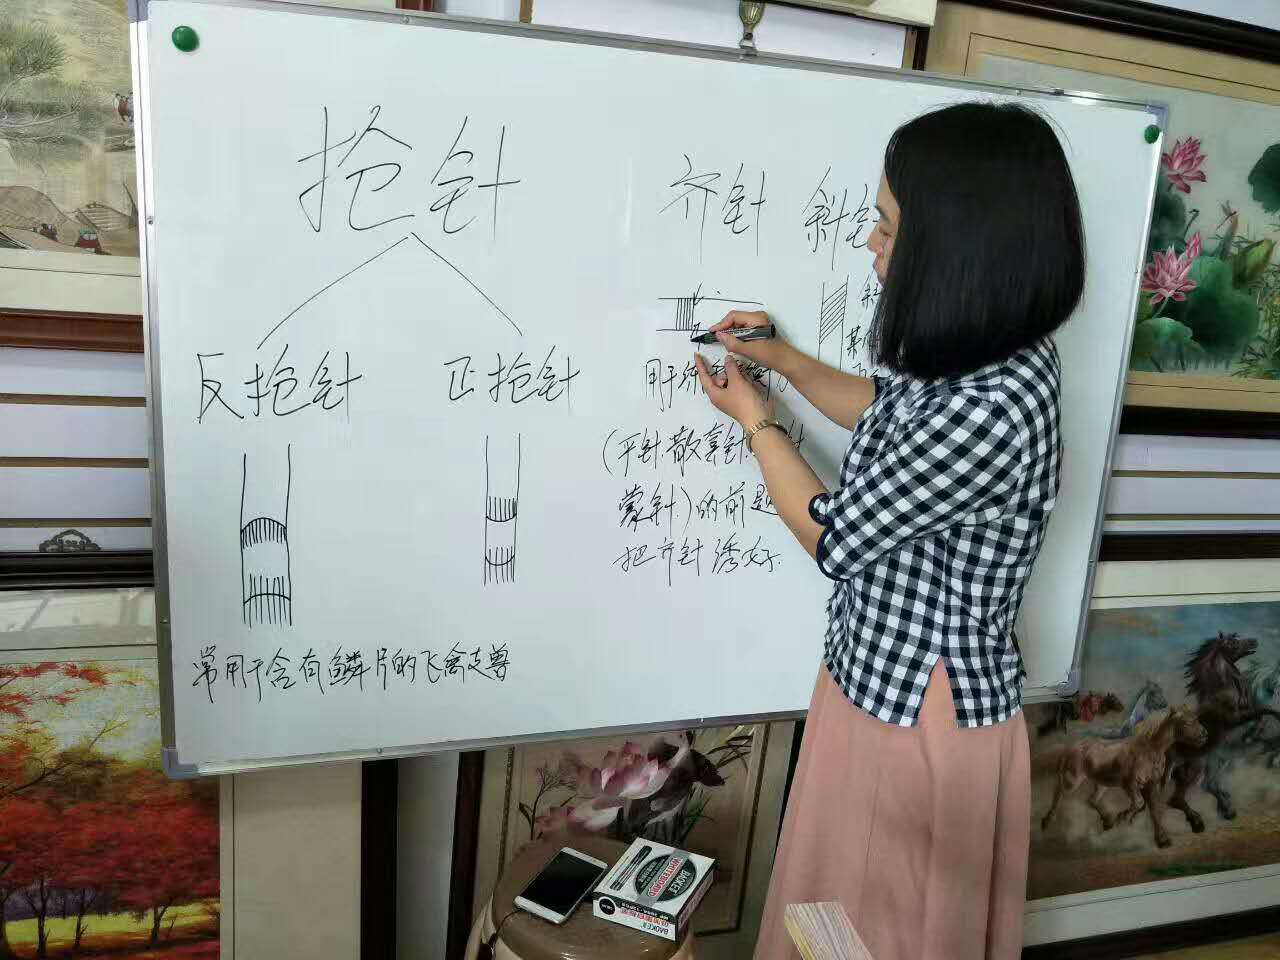 抢针
反抢针
正抢针
常用于含有鳞片的飞禽走兽
齐针
用于
(平针.散套针.
蒙针)的前题
把齐针绣好.
斜针
BAOKE
WHITEBOARD
BAOKE